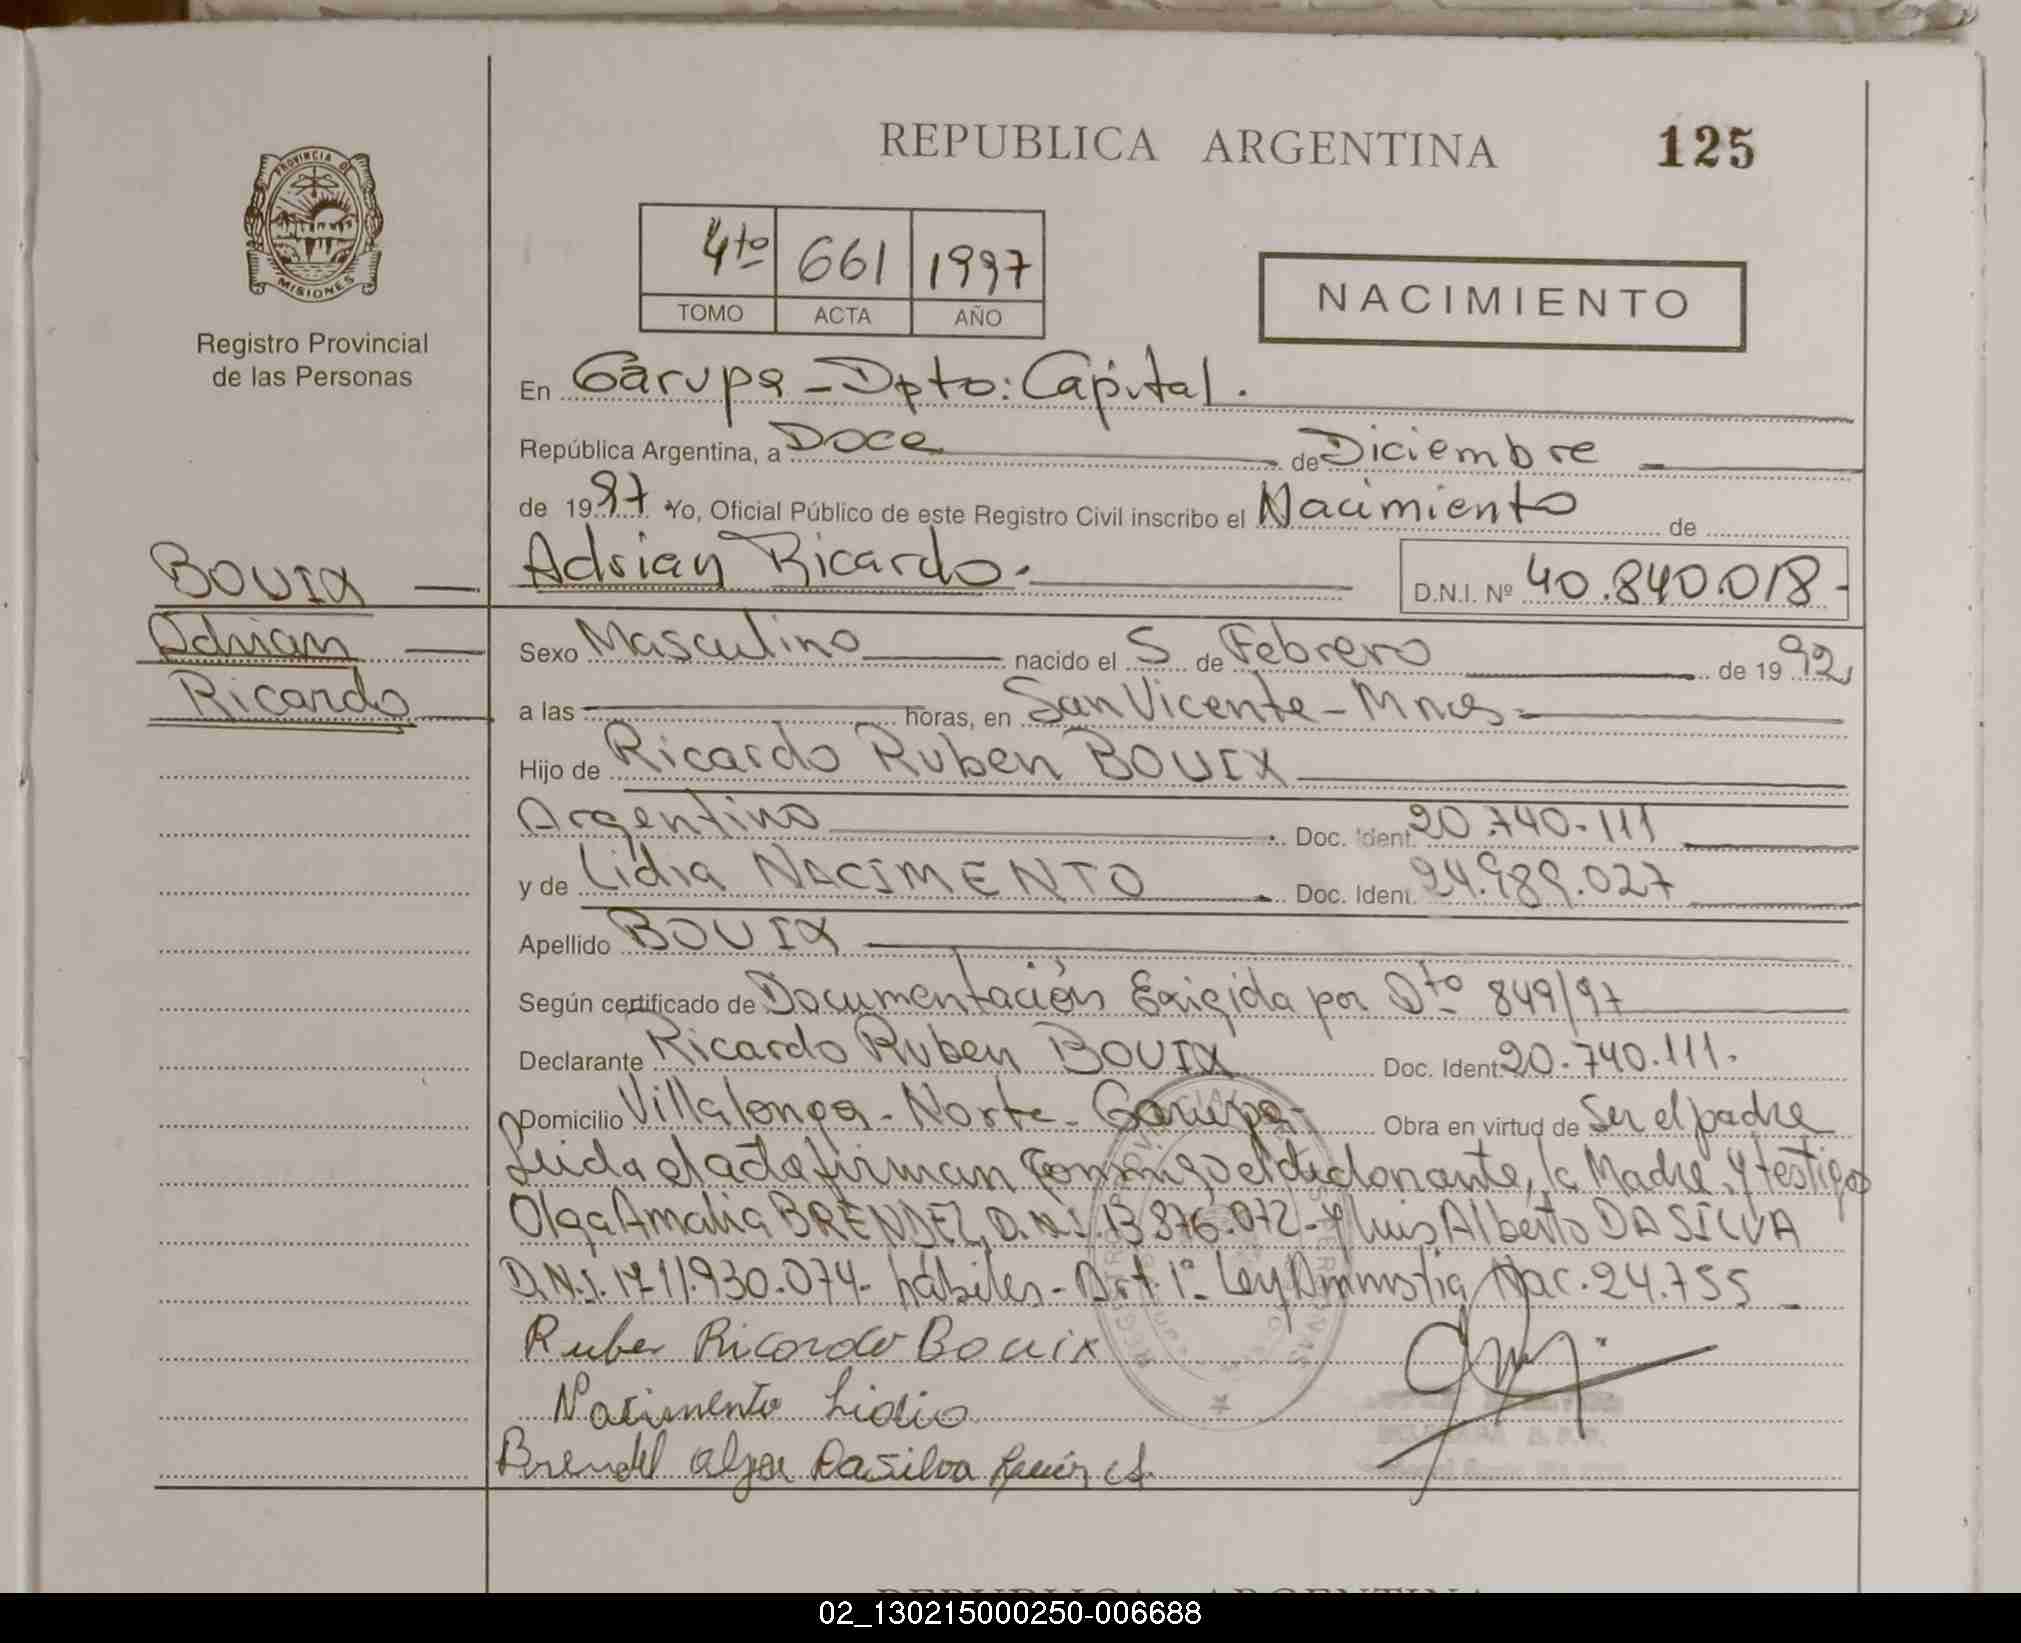 REPUBLICA ARGENTINA 125
PROVINCIA DE
MISIONES
Registro Provincial
de las Personas
4to 661 1997
TOMO ACTA AÑO
NACIMIENTO
En Garupa - Dpto: Capital.
República Argentina, a Doce de Diciembre
de 1997 Yo, Oficial Público de este Registro Civil inscribo el Nacimiento de
BOUIX
Adrian
Ricardo
Adrian Ricardo.
D.N.I. Nº 40.840.018-
Sexo Masculino nacido el 5 de Febrero de 1992
a las horas, en San Vicente - Mnes
Hijo de Ricardo Ruben BOUIX
Argentino Doc. Ident. 20.740.111
y de Lidia NACIMENTO Doc. Ident. 24.989.027
Apellido BOUIX
Según certificado de Documentación Exigida por Dto 849/97
Declarante Ricardo Ruben BOUIX Doc. Ident. 20.740.111.
Domicilio Villalonga - Norte - Garupa - Obra en virtud de Ser el padre
Leida el acta firman conmigo el declarante, la Madre, y testigos
Olga Amalia BRENDEL, D.N.I. 13.876.072 - y Luis Alberto DA SILVA
D.N.I. 11.930.074 - hábiles - Art. 1º Ley Amnistia Nac. 24.755
Ruben Ricardo Bouix
Nacimento Lidia
Brendel Olga Dasilva Luis A.
REPUBLICA ARGENTINA
02_130215000250-006688